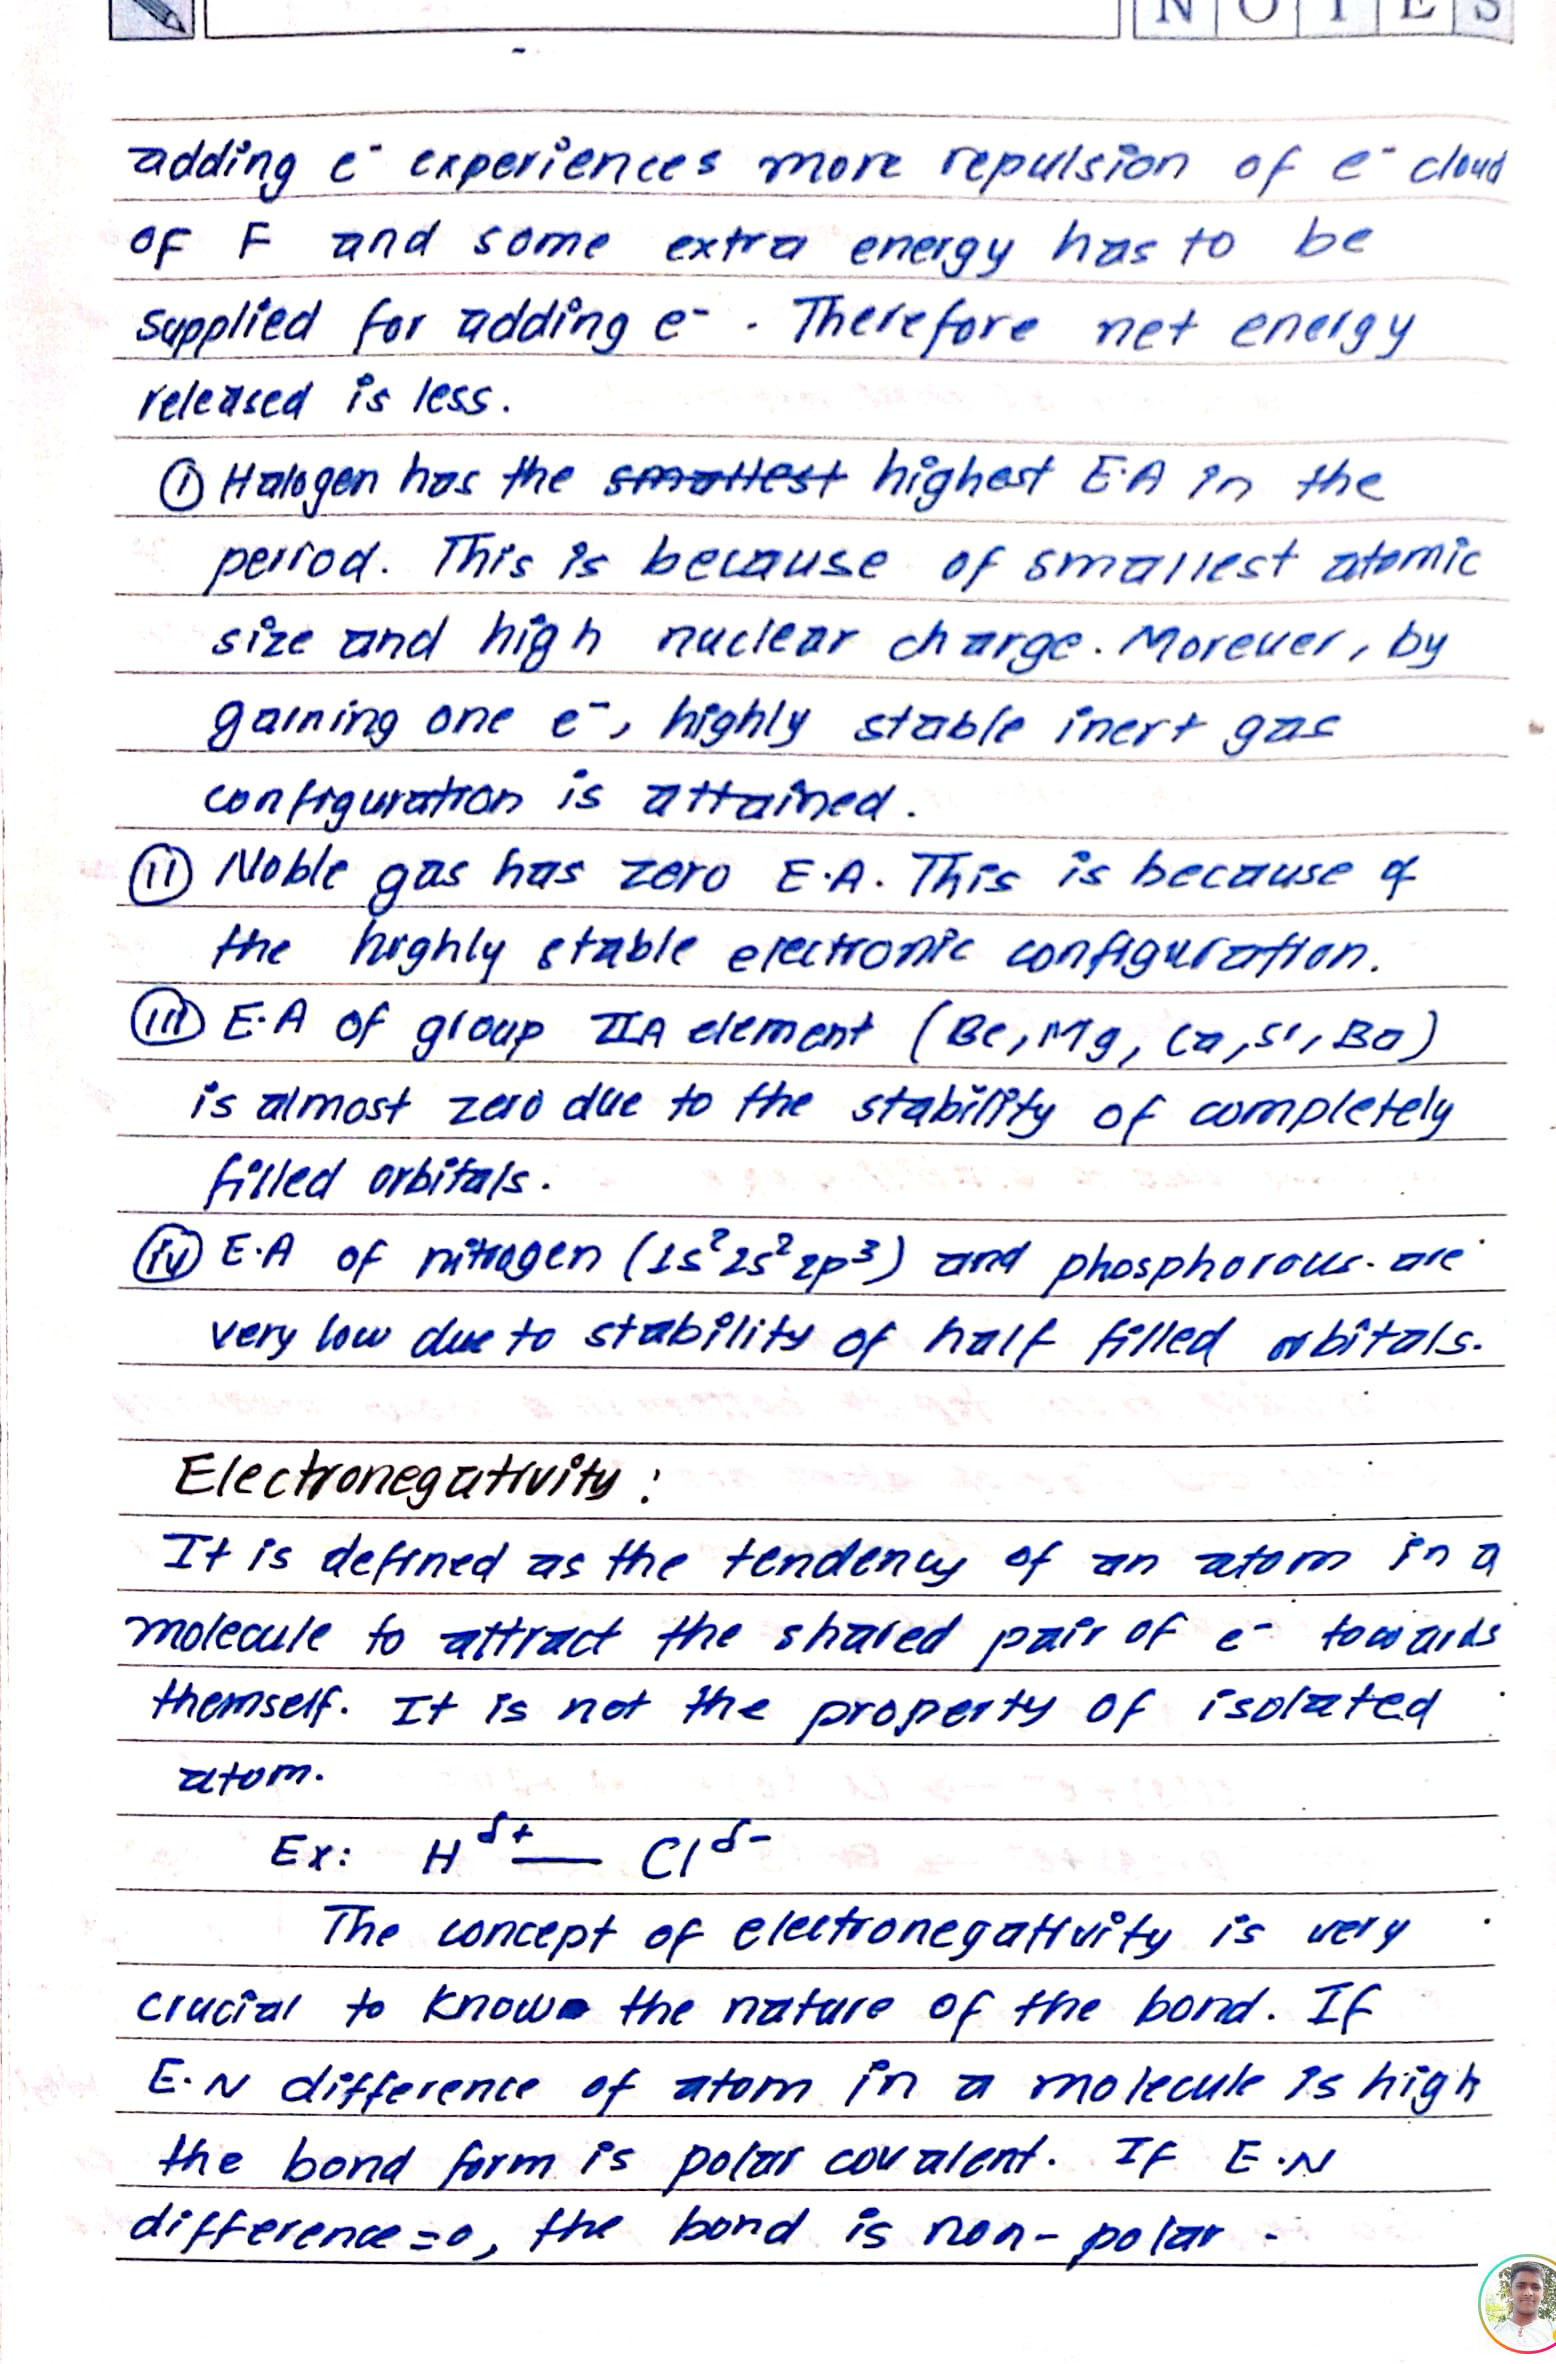 NOTES
adding e⁻ experiences more repulsion of e⁻ cloud
of F and some extra energy has to be
supplied for adding e⁻. Therefore net energy
released is less.
(i) Halogen has the smallest highest E.A in the
period. This is because of smallest atomic
size and high nuclear charge. Morever, by
gaining one e⁻, highly stable inert gas
configuration is attained.
(ii) Noble gas has zero E.A. This is because of
the highly stable electronic configuration.
(iii) E.A of group IIA element (Be, Mg, Ca, Sr, Ba)
is almost zero due to the stability of completely
filled orbitals.
(iv) E.A of nitrogen (1s²2s²2p³) and phosphorous are
very low due to stability of half filled orbitals.
Electronegativity:
It is defined as the tendency of an atom in a
molecule to attract the shared pair of e⁻ towards
themself. It is not the property of isolated
atom.
Ex: H^δ+ — Cl^δ-
The concept of electronegativity is very
crucial to know the nature of the bond. If
E.N difference of atom in a molecule is high
the bond form is polar covalent. If E.N
difference=0, the bond is non-polar.